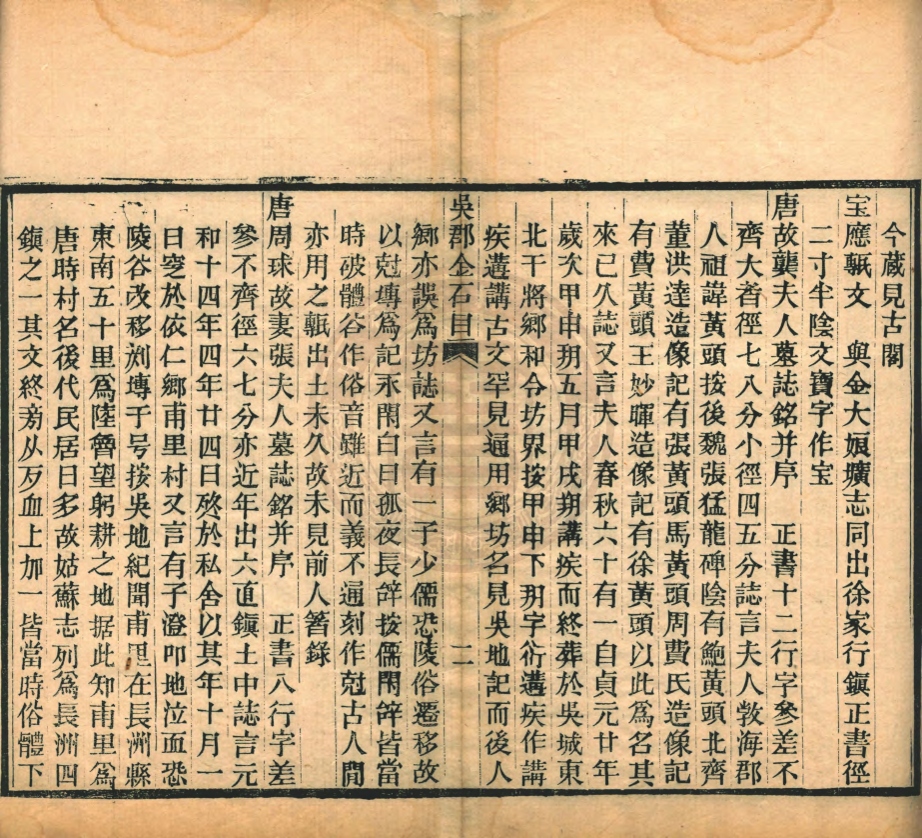 今蔵見古閣
宝應甎文　與金大娘壙志同出徐家行鎮正書徑
二寸半陰文寶字作宝
唐故龔夫人墓誌銘并序　正書十二行字參差不
齊大者徑七八分小徑四五分誌言夫人敦海郡
人祖諱黃頭按後魏張猛龍碑陰有鮑黃頭北齊
董洪達造像記有張黃頭馬黃頭周費氏造像記
有費黃頭王妙暉造像記有徐黃頭以此爲名其
來已久誌又言夫人春秋六十有一自貞元廿年
歲次甲申玥五月甲戌朔講疾而終葬於吳城東
北干將鄉和令坊界按甲申下玥字衍遘疾作講
疾遘講古文罕見通用鄉坊名見吳地記而後人
吳郡金石目　二
鄉亦誤爲坊誌又言有一子少儒恐陵俗遷移故
以尅塼爲記永閇白日孤夜長辝按儒閇辝皆當
時破體谷作俗音雖近而義不通刻作尅古人閒
亦用之甎出土未久故未見前人箸錄
唐周球故妻張夫人墓誌銘并序　正書八行字差
參不齊徑六七分亦近年出六直鎭土中誌言元
和十四年四年廿四日歿於私舍以其年十月一
日窆於依仁鄉甫里村又言有子澄叩地泣血恐
陵谷改移刿塼于号按吳地紀聞甫里在長洲縣
東南五十里爲陸魯望躬耕之地据此知甫里爲
唐時村名後代民居日多故姑蘇志列爲長洲四
鎭之一其文終旁从歹血上加一皆當時俗體下